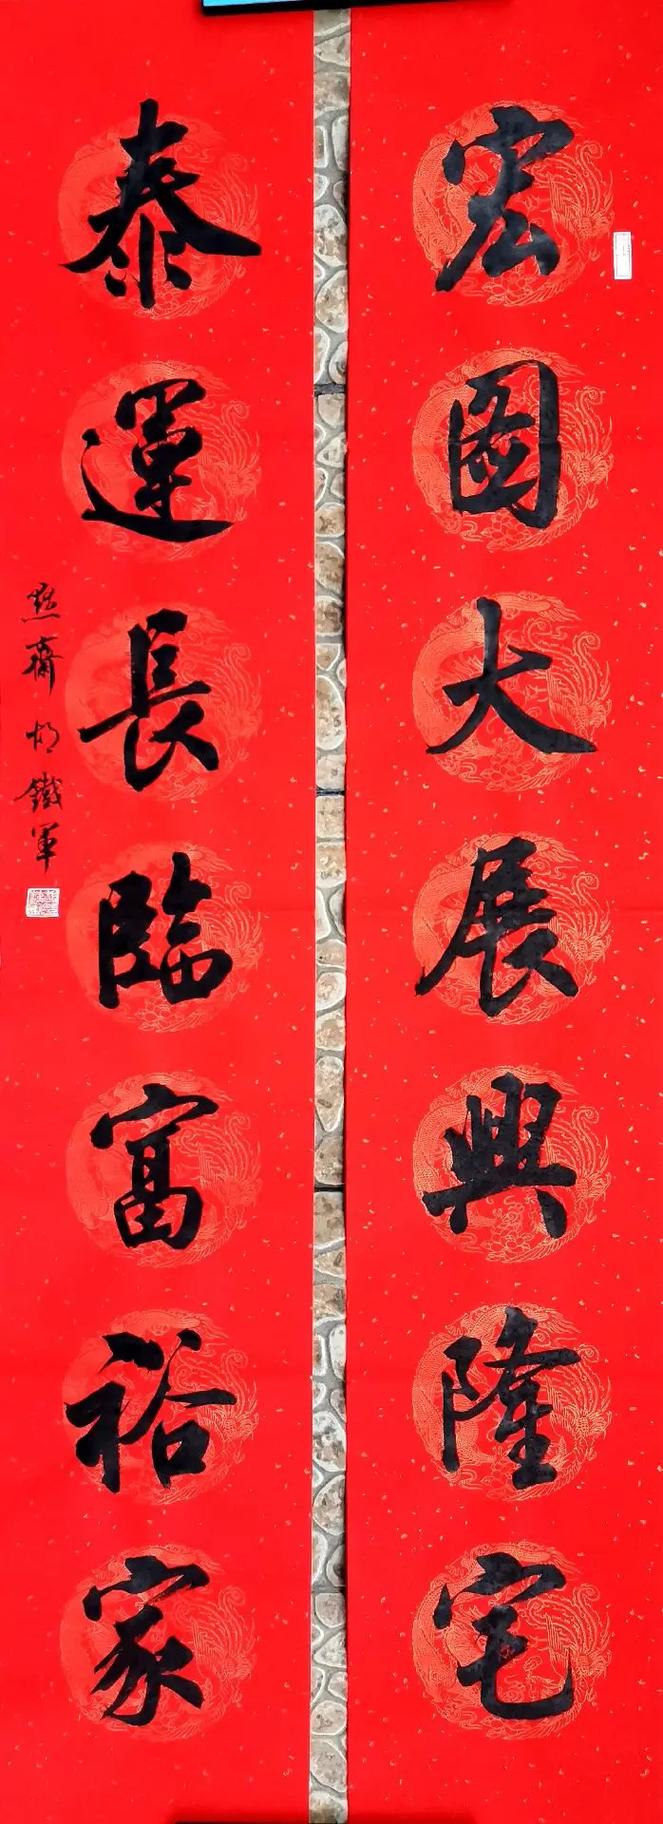 宏圖大展興隆宅
泰運長臨富裕家
點齋 胡鐵軍